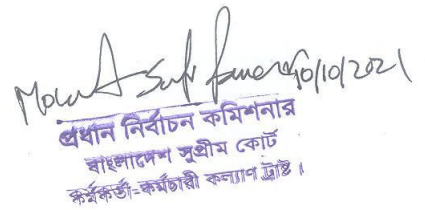 10/10/2021
প্রধান নির্বাচন কমিশনার
বাংলাদেশ সুপ্রীম কোর্ট
কর্মকর্তা-কর্মচারী কল্যাণ ট্রাষ্ট।